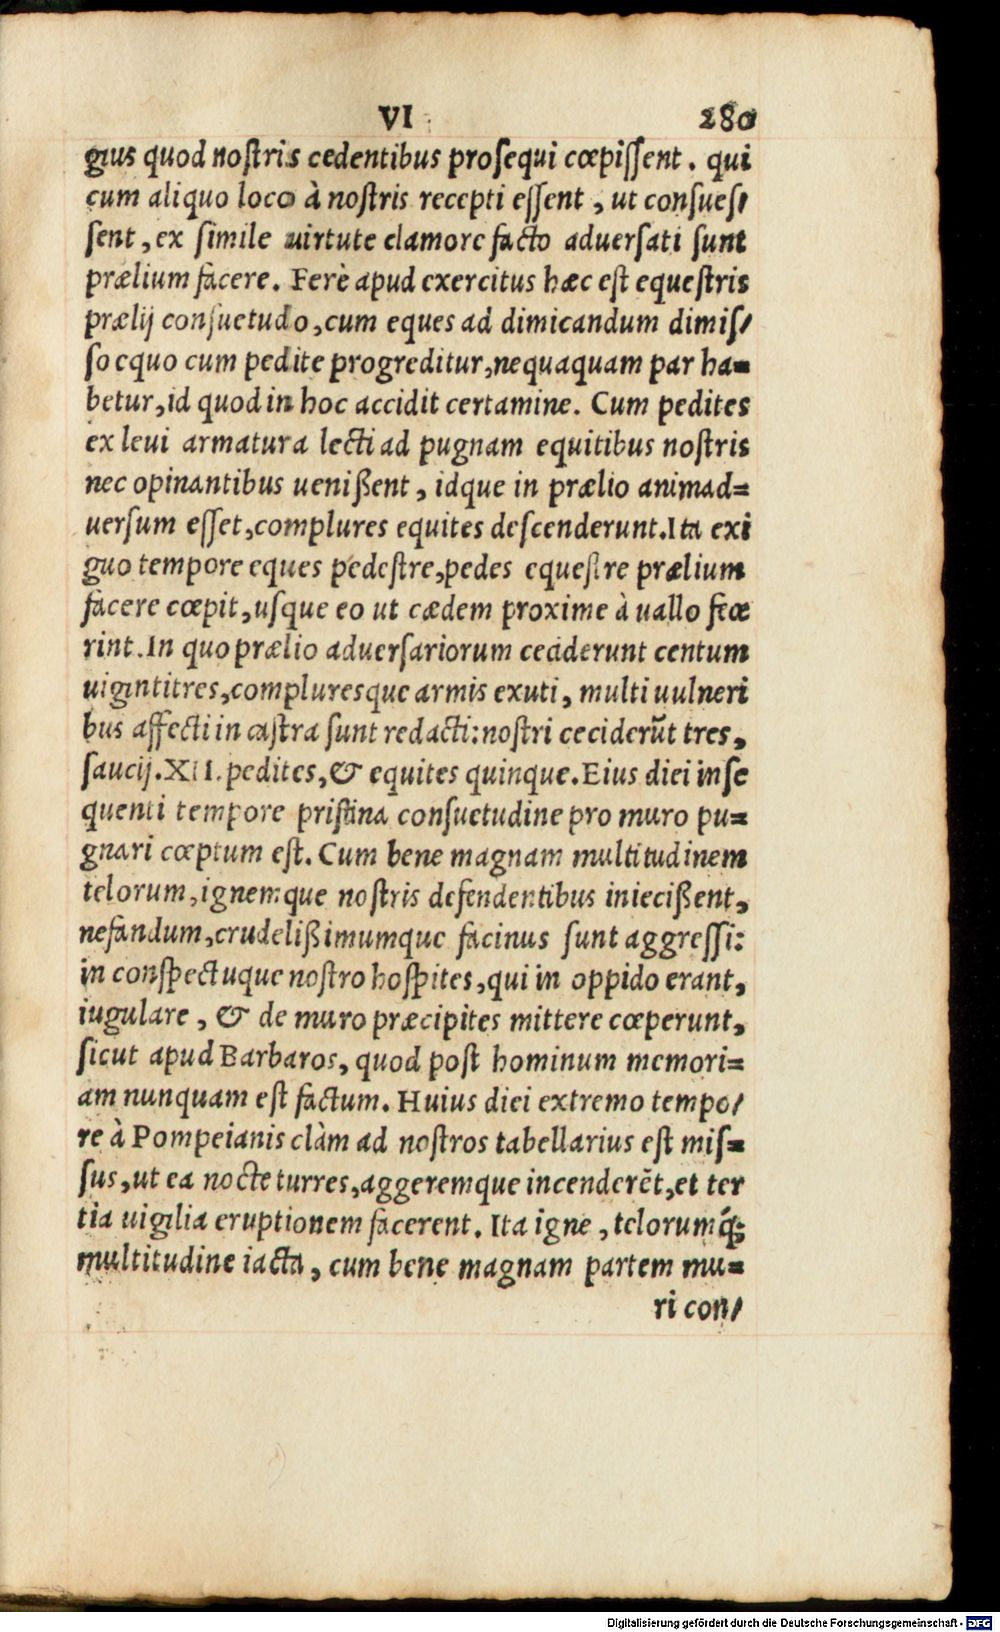 VI 280
gius quod noſtris cedentibus proſequi cœpiſſent. qui
cum aliquo loco à noſtris recepti eſſent, ut conſueſ/
ſent, ex ſimile uirtute clamore facto aduerſati ſunt
prælium facere. Ferè apud exercitus hæc eſt equeſtris
prælij conſuetudo, cum eques ad dimicandum dimiſ/
ſo equo cum pedite progreditur, nequaquam par ha=
betur, id quod in hoc accidit certamine. Cum pedites
ex leui armatura lecti ad pugnam equitibus noſtris
nec opinantibus uenißent, idque in prælio animad=
uerſum eſſet, complures equites deſcenderunt. Ita exi
guo tempore eques pedeſtre, pedes equeſtre prælium
facere cœpit, uſque eo ut cædem proxime à uallo fece
rint. In quo prælio aduerſariorum ceciderunt centum
uigintitres, compluresque armis exuti, multi uulneri
bus affecti in caſtra ſunt redacti: noſtri ceciderũt tres,
ſaucij. XII. pedites, & equites quinque. Eius diei inſe
quenti tempore priſtina conſuetudine pro muro pu=
gnari cœptum eſt. Cum bene magnam multitudinem
telorum, ignemque noſtris defendentibus iniecißent,
nefandum, crudelißimumque facinus ſunt aggreſſi:
in conſpectuque noſtro hoſpites, qui in oppido erant,
iugulare, & de muro præcipites mittere cœperunt,
ſicut apud Barbaros, quod poſt hominum memori=
am nunquam eſt factum. Huius diei extremo tempo/
re à Pompeianis clàm ad noſtros tabellarius eſt miſ=
ſus, ut ea nocte turres, aggeremque incenderẽt, et ter
tia uigilia eruptionem facerent. Ita igne, telorumq́;
multitudine iacta, cum bene magnam partem mu=
ri con/
Digitalisierung gefördert durch die Deutsche Forschungsgemeinschaft - DFG